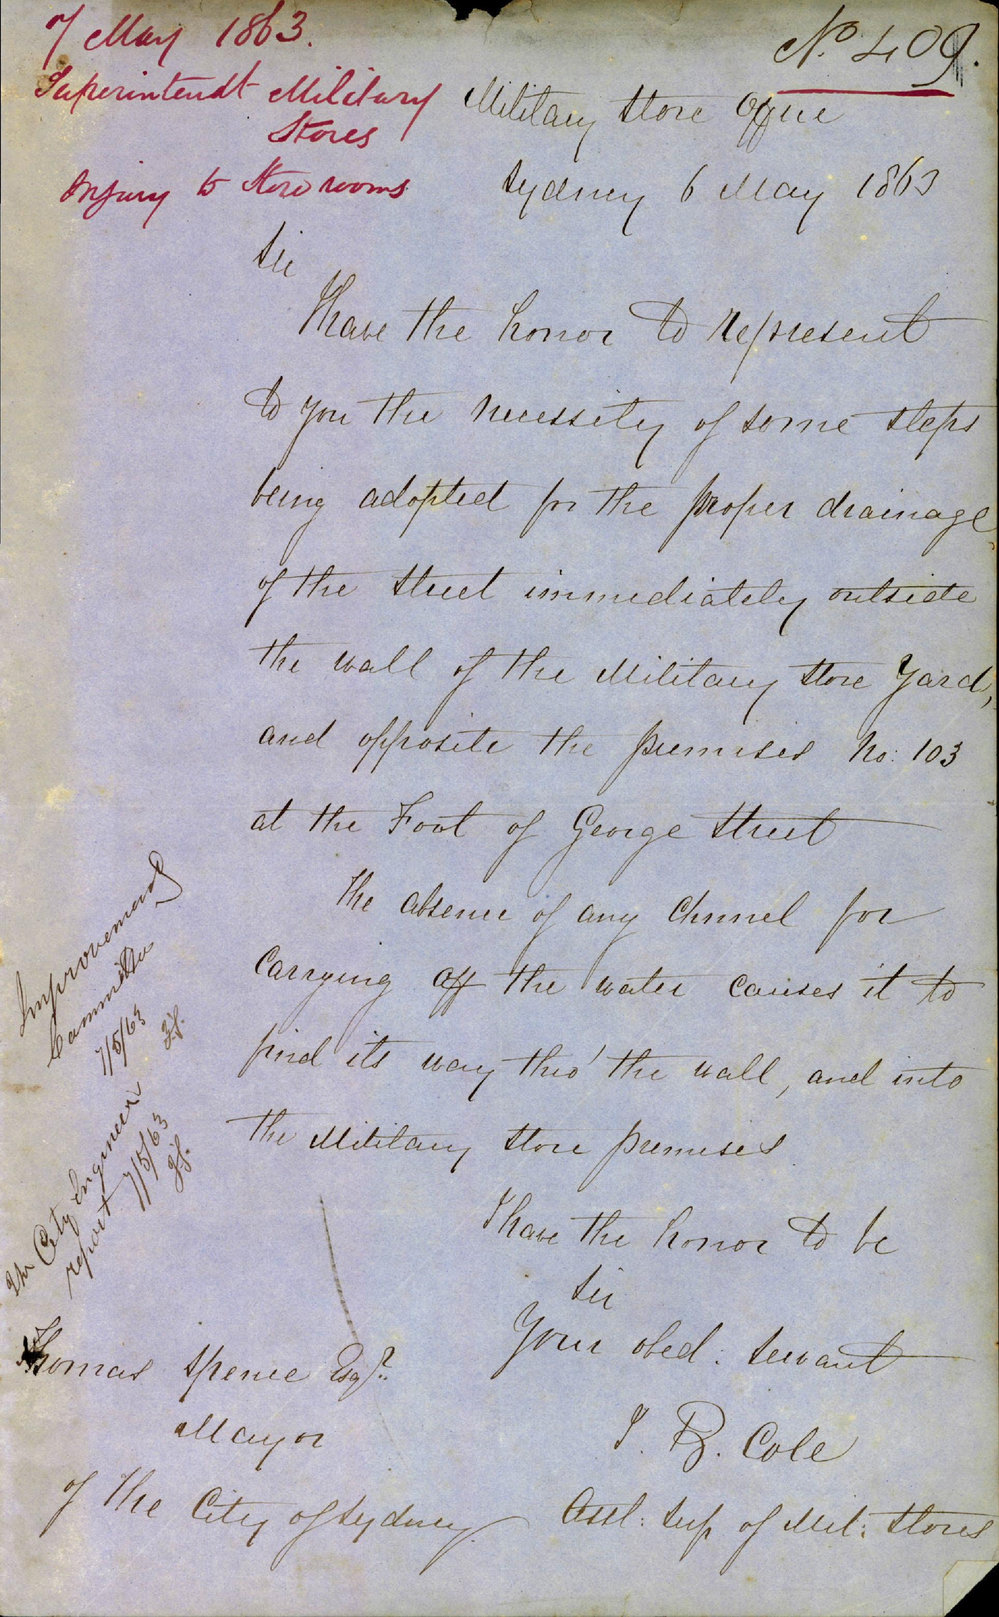 7 May 1863.
Superintendt Military
Stores
Injury to Store rooms
No. 409.
Military Store Office
Sydney 6 May 1863
Sir
I have the honor to represent
to you the necessity of some steps
being adopted for the proper drainage
of the Street immediately outside
the wall of the Military Store Yard,
and opposite the premises No: 103
at the Foot of George Street
The absence of any Channel for
Carrying off the water causes it to
find its way thro' the wall, and into
the Military Store premises
I have the honor to be
Sir
Your obed: Servant
J. B. Cole
Asst: Sup of Mil: Stores
Thomas Spence Esqr.
Mayor
of the City of Sydney
Improvement
Committee
7/5/63
The City Engineer
report 7/5/63